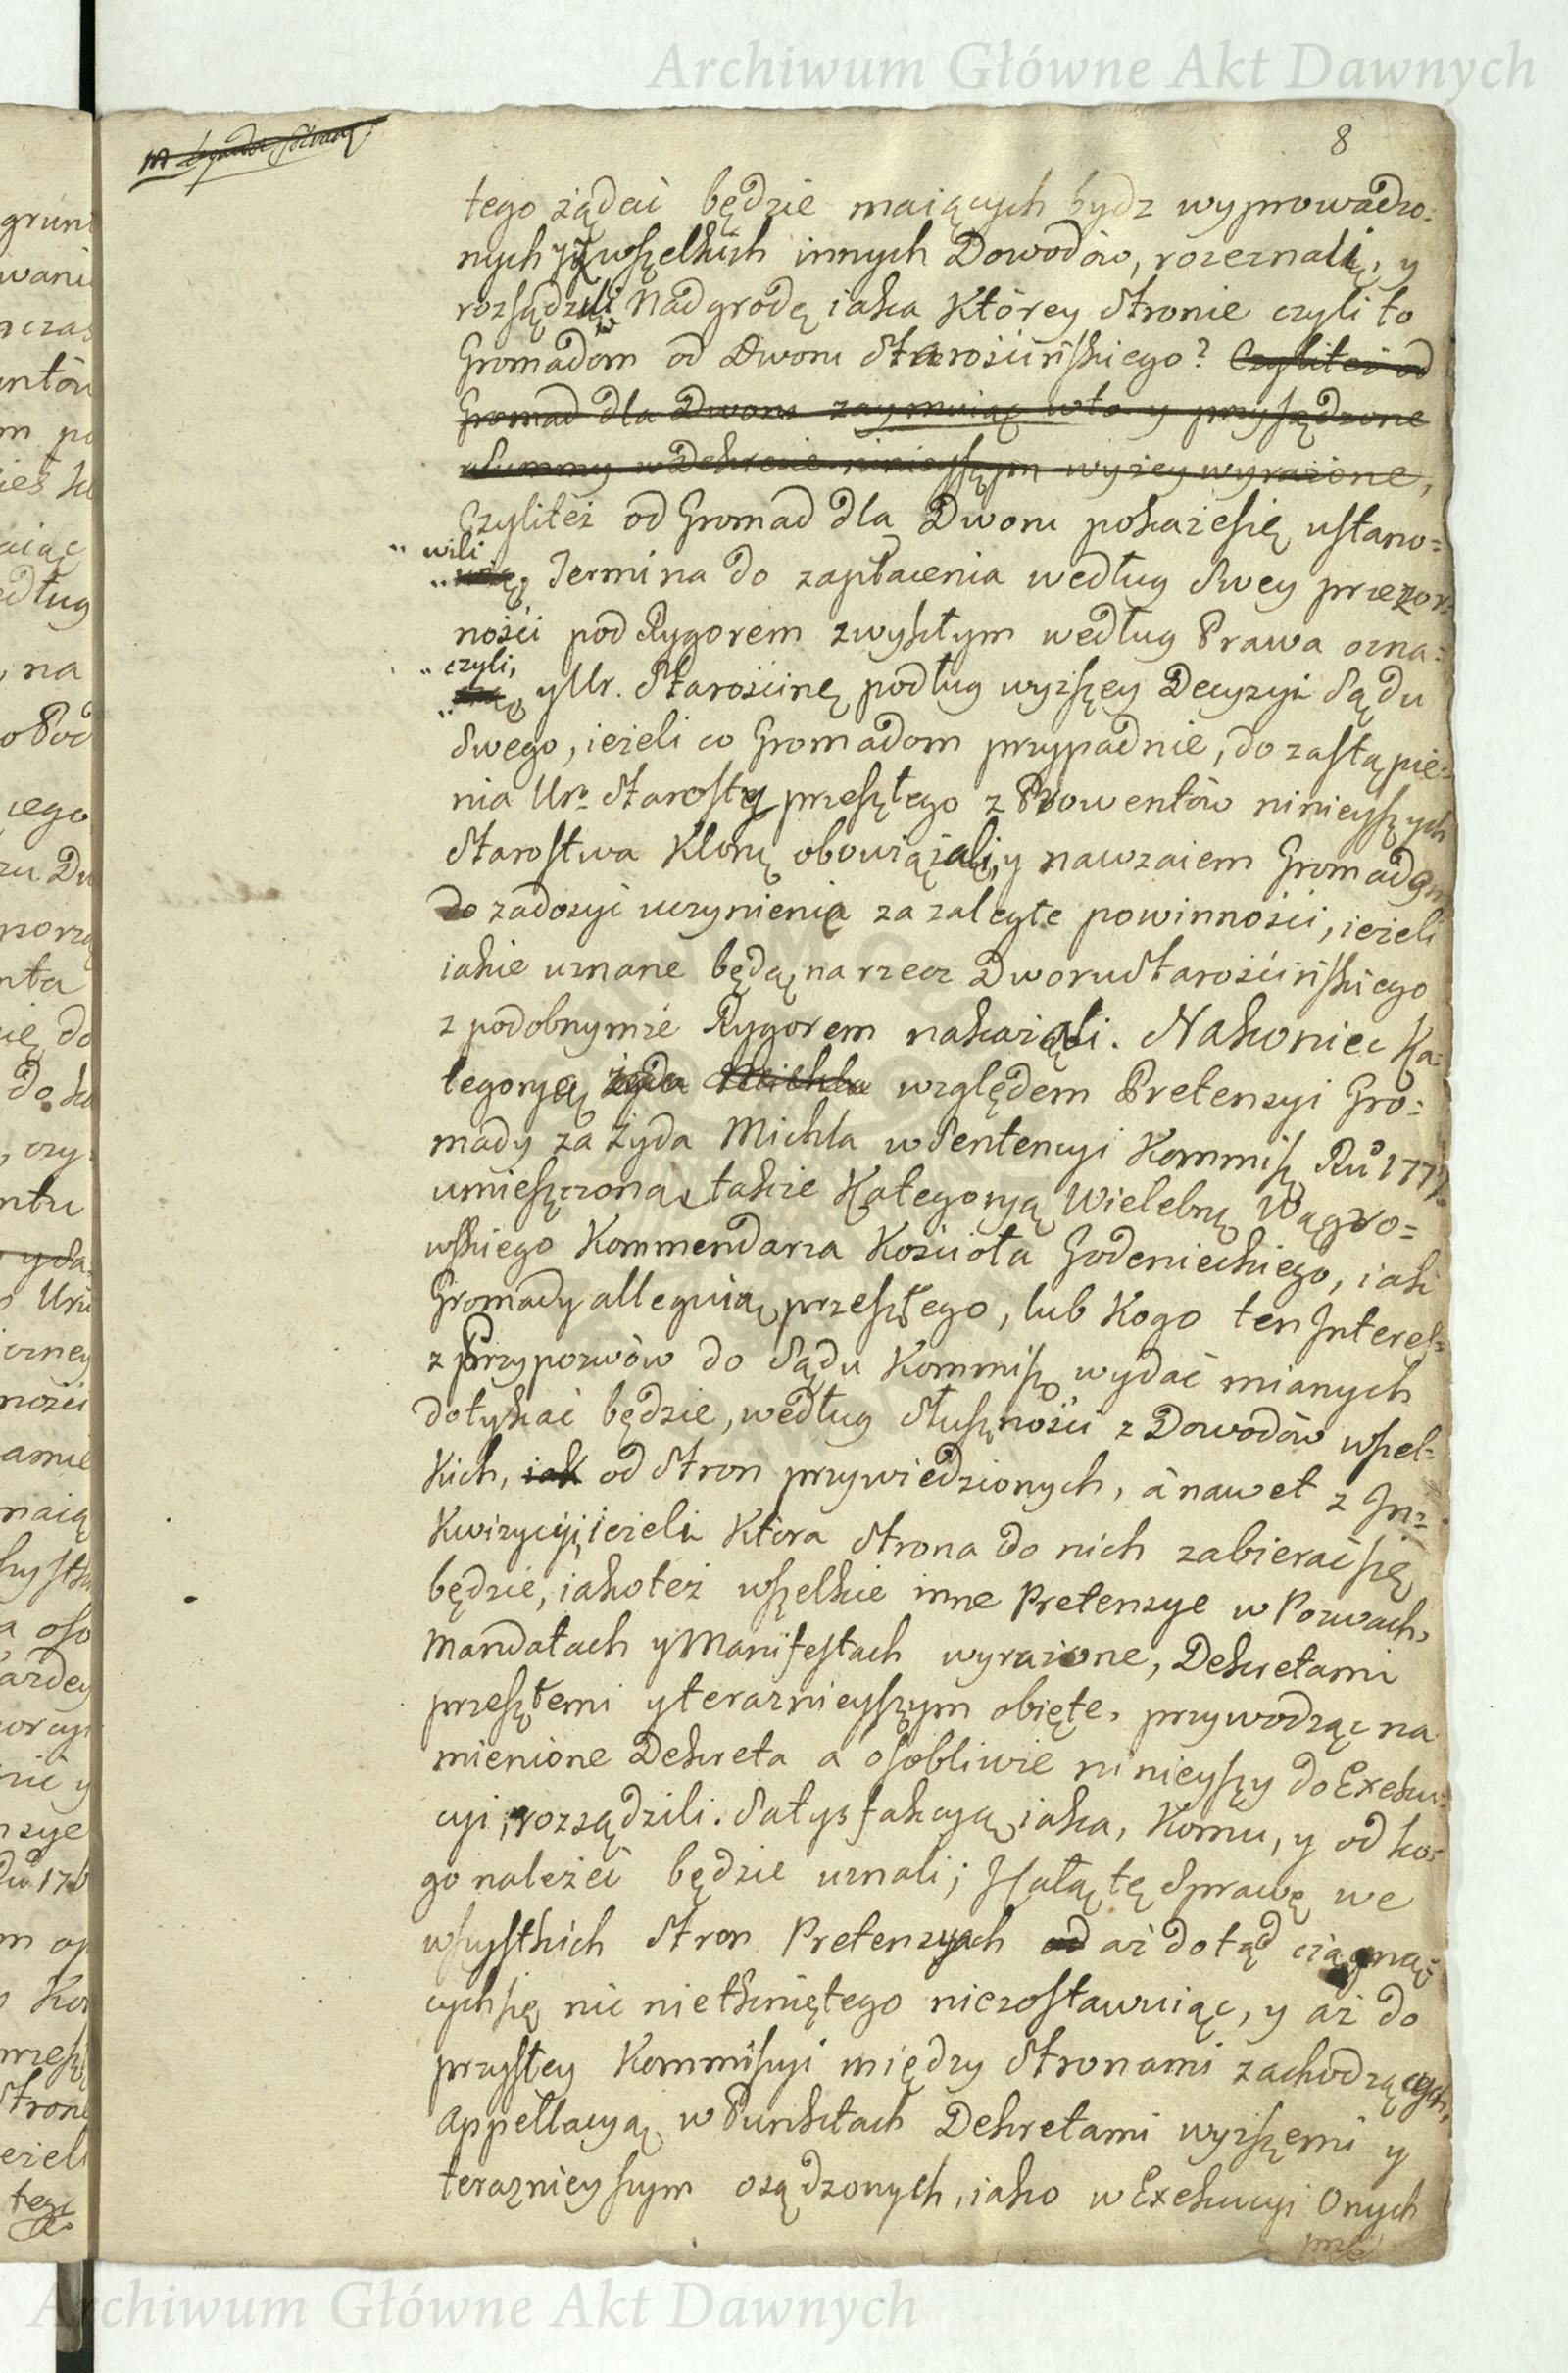 Archiwum Główne Akt Dawnych
8
tego żądać będzie maiących bydz wyprowadzo:
nych y z wszelkich innych Dowodów, rozeznali, y
rozsądzili Nadgrodę iaka Którey Stronie czyli to
Gromadom od Dworu Starościńskiego? Czyliteż od
Gromad dla Dworu zaymuiąc w to y przysądzone
Summy w Dekrecie ninieyszym wyżey wyrażone,
Czyliteż od Gromad dla Dworu pokażesię ustano=
wili
Termina do zapłacenia według Swey przezor:
ności pod Rygorem zwykłym według Prawa ozna=
czyli,
y Ur. Starościnę podług wyższey Decyzyi Sądu
Swego, ieżeli co Gromadom przypadnie, do zastąpie=
nia Ur. Starosty przeszłego z Prowentów ninieyszych
Starostwa Klonu obowiązali, y nawzaiem Gromadom
do zadosyć uczynienia za zaległe powinności, ieżeli
iakie uznane będą, na rzecz Dworu Starościńskiego
z podobnymże Rygorem nakazali. Nakoniec Ka=
tegoryą żyda Michla względem Pretensyi Gro:
mady za żyda Michla w Sentencyi Kommisś. Ru 1777.
umieszczoną, takze Kategoryą Wielebnę Wągro=
wskiego Kommendarza Kościoła Godenieckiego, iak
Gromady alleguią przeszłego, lub Kogo ten Interes=
z Przypozwów do Sądu Kommisś. wydać mianych
dotykać będzie, według Słuszności z Dowodów wszel=
kich, iak od Stron przywiedzionych, á nawet z In=
kwizycyi, ieżeli Która Strona do nich zabierać się
będzie, iakoteż wszelkie inne Pretensye w Pozwach,
Mandatach y Manifestach wyrażone, Dekretami
przeszłemi y terazniejszym obięte, przywodząc na
mienione Dekreta a osobliwie ninieyszy do Exeku=
cyi, rozsądzili. Satysfakcyą iaka, Komu, y od ko=
go należeć będzie uznali; Y całą tę Sprawę we
wszystkich Stron Pretensyach od aż dotąd ciągną=
cych się nic nietkniętego niezostawuiąc, y aż do
przyszłey Kommissyi między Stronami zachodzących,
Appellacyą w Punktach Dekretami wyższemi y
teraznieyszym osądzonych, iako w Exekucyi Onych
Archiwum Główne Akt Dawnych